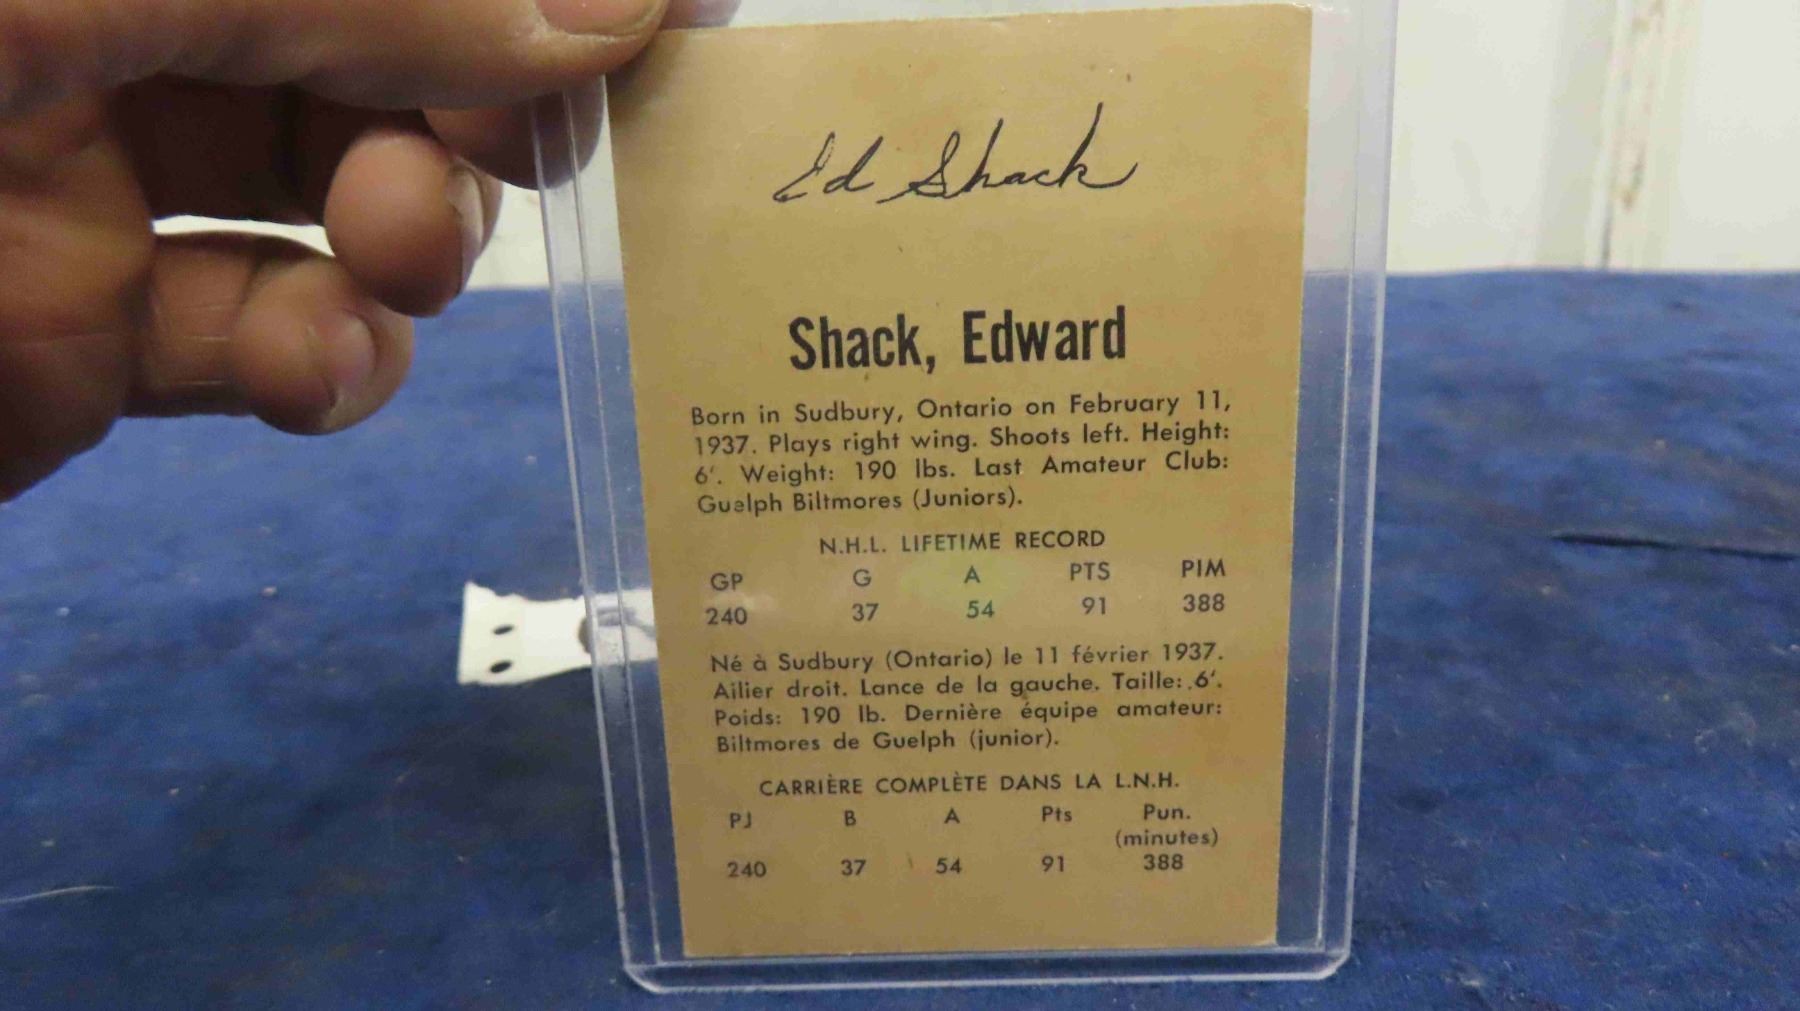 Ed Shack
Shack, Edward
Born in Sudbury, Ontario on February 11,
1937. Plays right wing. Shoots left. Height:
6'. Weight: 190 lbs. Last Amateur Club:
Guelph Biltmores (Juniors).
N.H.L. LIFETIME RECORD
GP G A PTS PIM
240 37 54 91 388
Né à Sudbury (Ontario) le 11 février 1937.
Ailier droit. Lance de la gauche. Taille: 6'.
Poids: 190 lb. Dernière équipe amateur:
Biltmores de Guelph (junior).
CARRIÈRE COMPLÈTE DANS LA L.N.H.
PJ B A Pts Pun.
(minutes)
240 37 54 91 388